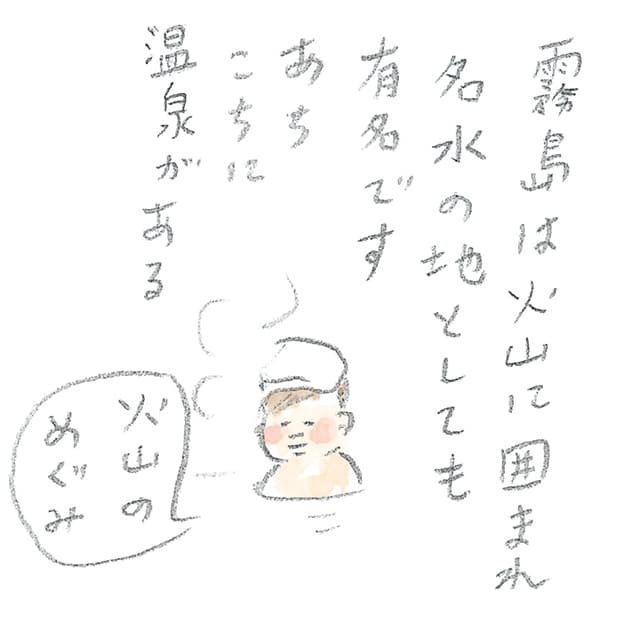 霧島は火山に囲まれ
名水の地としても
有名です
あち
こちに
温泉がある
火山の
めぐみ